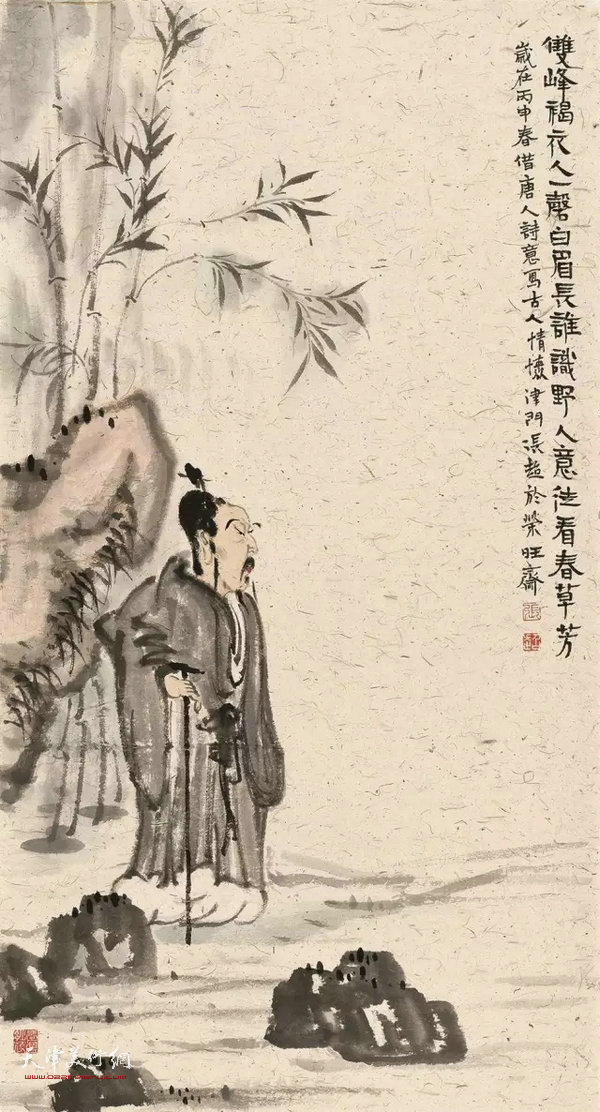 雙峰褐衣人一磬白眉長誰識野人意徒看春草芳
歲在丙申春借唐人詩意寫古人情懷津門張超於榮旺齋
天津美術網